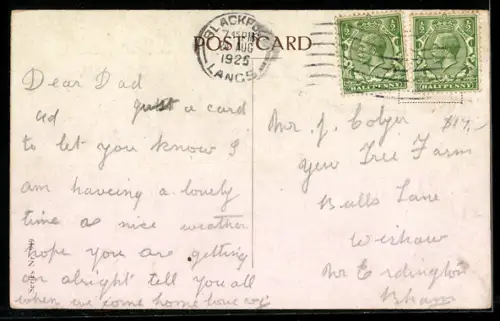 POST CARD
BLACKPOOL
7.15PM
AUG
1925
LANCS
HALFPENNY
HALFPENNY
Dear Dad
just a card
to let you know I
am haveing a lovely
time a nice weather
hope you are getting
on alright tell you all
when we come home love
$17.-
Mr J. Colyer
Yew Tree Farm
Bulls Lane
Wishaw
Nr Erdington
Bham